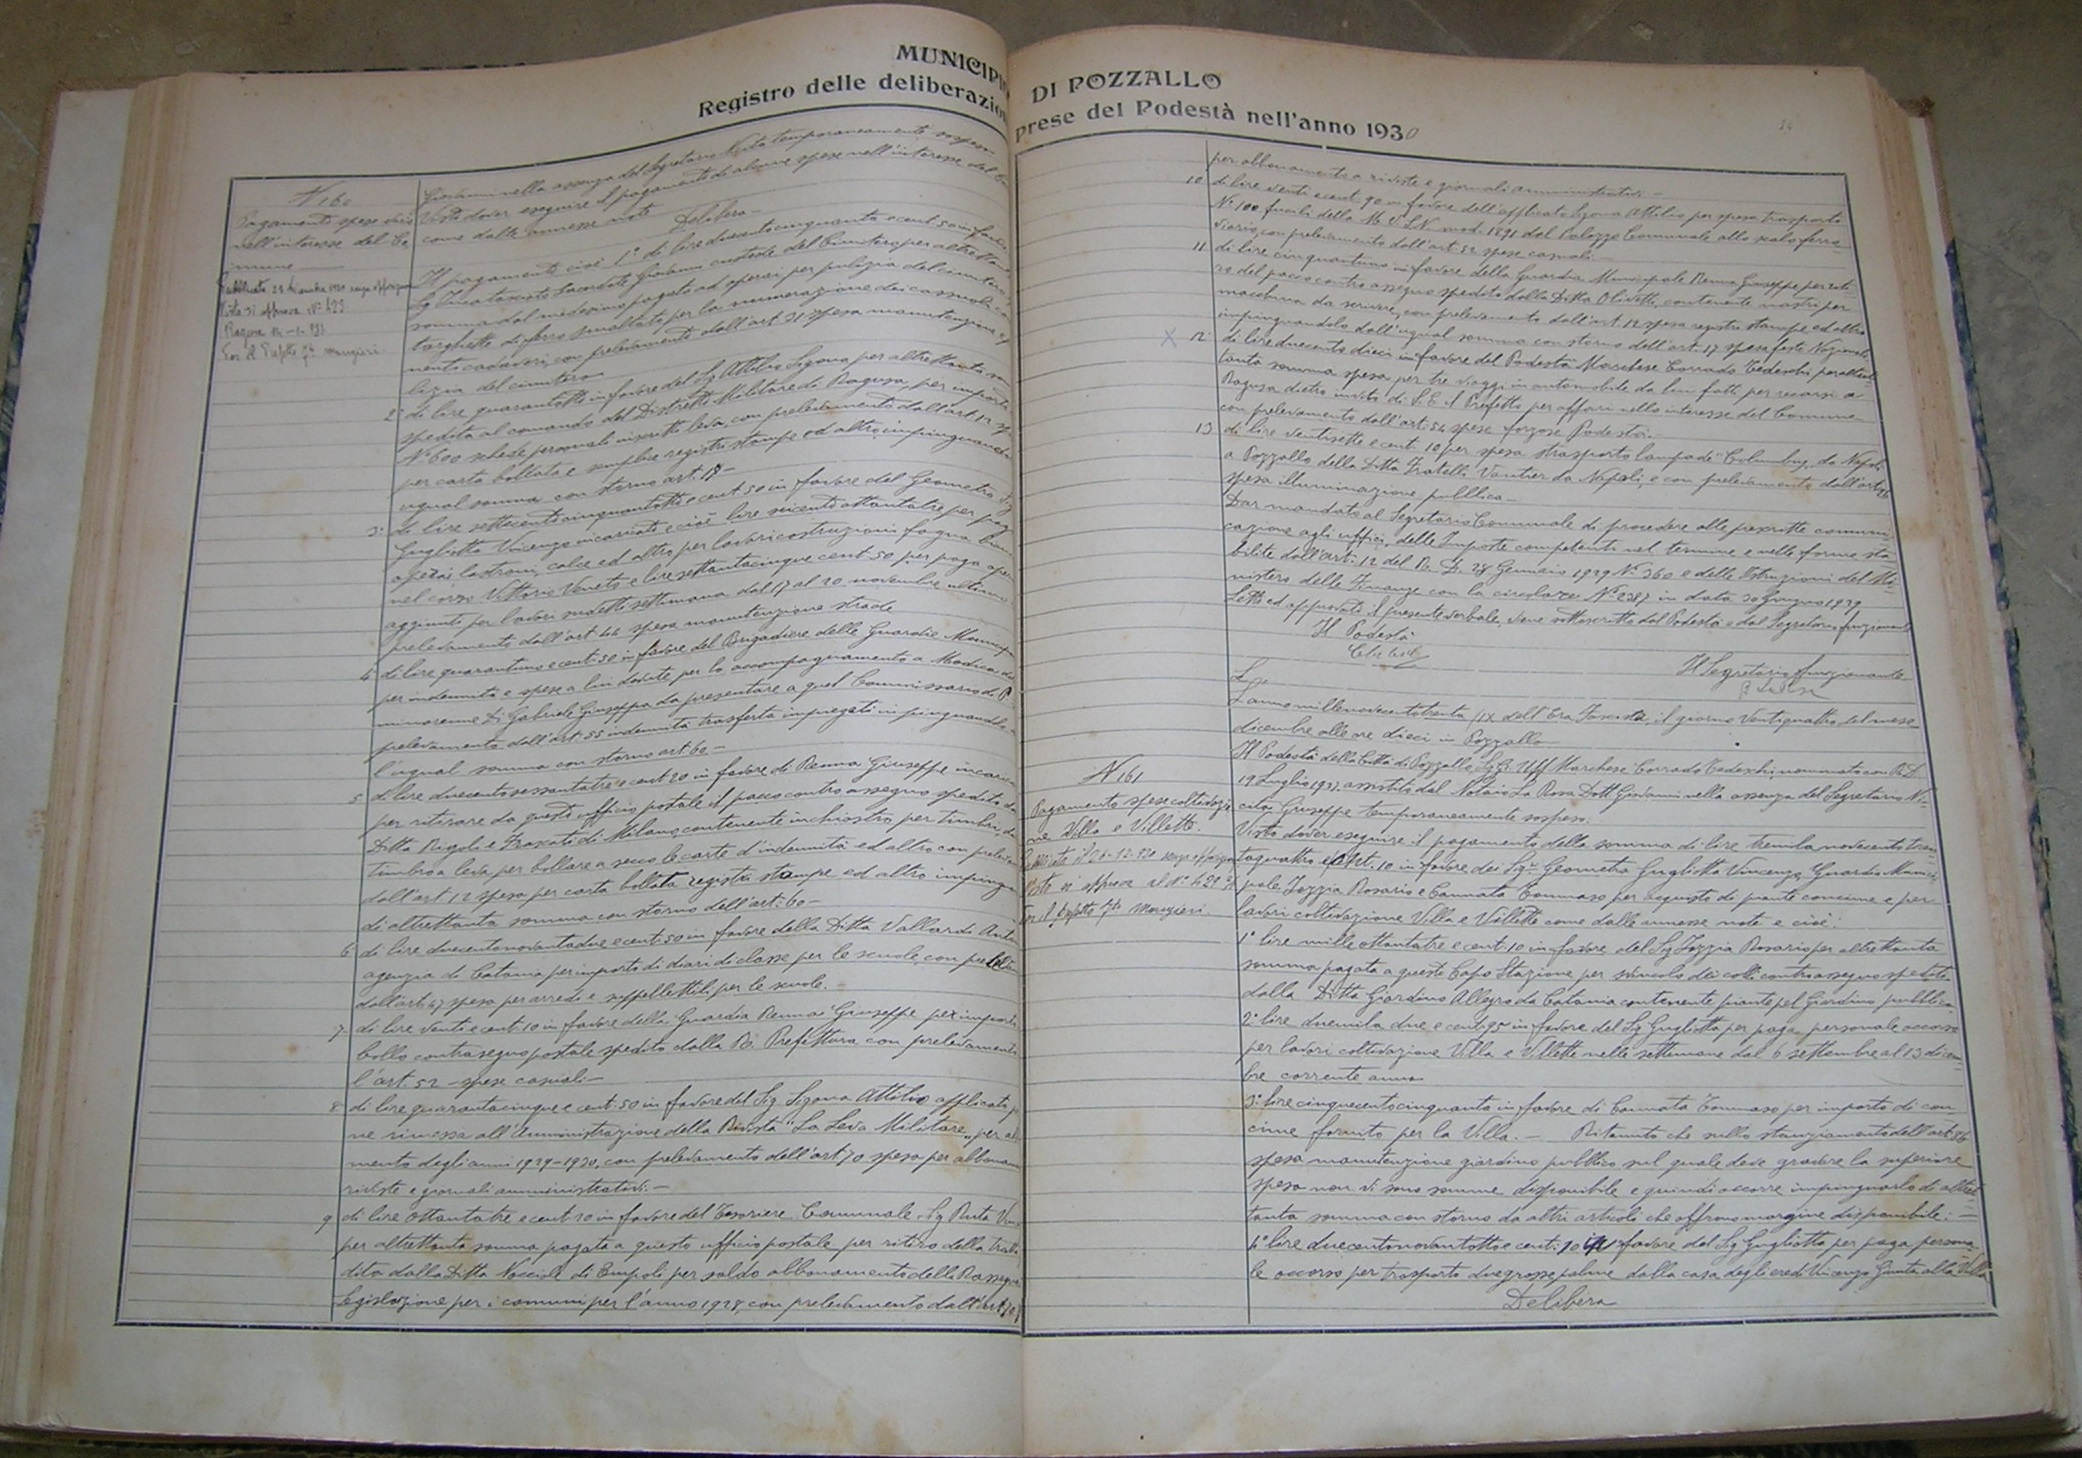 MUNICIPIO DI POZZALLO
Registro delle deliberazioni prese del Podestà nell'anno 1930
N 160
Pagamento spese
nell'interesse del Co
mune
Pubblicata
Visto si approva N° 423
Ragusa
Per il Prefetto
Giovanni nella assenza del Segretario temporaneamente sospeso
Visto dover eseguire il pagamento di alcune spese nell'interesse del Co
come dalle annesse note
Delibera
Il pagamento cioè 1° di lire duecentocinquanta e cent. 50 in favore
Giovanni custode del Cimitero per altrettanta
somma dal medesimo pagata ad operai per pulizia del cimitero
targhette di ferro smaltato per la numerazione dei
con prelevamento dall'art 31 spesa manutenzione e
lizia del cimitero
2° di lire quarantotto in favore del Sig Attilio Sigona per altrettanta som
spedita al comando del Distretto Militare di Ragusa, per importo
N° 600 schede personali inscritti leva, con prelevamento dall'art 12 sp
per carta bollata e semplice registri stampe ed altro, impinguando
ugual somma con storno art. 17 -
3° di lire settecentocinquantotto e cent 50 in favore del Geometra Sig
Guglielmo Vincenzo incaricato e cioè lire seicentottantatre per paga
operai lastroni, calce ed altro per lavori costruzioni fogna
nel corso Vittorio Veneto e lire settantacinque cent. 50 per paga oper
aggiunti per lavori suddetti settimana dal 17 al 20 novembre ultimo
prelevamento dall'art 44 spesa manutenzione strade
4 di lire quarantuno e cent. 50 in favore del Brigadiere delle Guardie Municip
per indennità e spese a lui dovute, per lo accompagnamento a Modica del
minorenne Di Gabriele Giuseppa da presentare a quel Commissario di P.
prelevamento dall'art. 55 indennità trasferta impiegati impinguandolo
l'ugual somma con storno art. 60 -
5 di lire duecentosessantatre e cent 20 in favore di Renna Giuseppe incaric
per ritirare da questo ufficio postale il pacco contro assegno spedito da
Ditta Rigoli e Frascoti di Milano, contenente inchiostro per timbri, da
timbro a leva per bollare a secco le carte d'indennità ed altro con prelevam
dall'art 12 spesa per carta bollata registri stampe ed altro impingu
di altrettanta somma con storno dell'art. 60 -
6 di lire duecentonovantadue e cent. 50 in favore della Ditta Vallardi Anto
agenzia di Catania per importo di diari di classe per le scuole, con prelevam
dall'art 47 spesa per arredi e suppellettili per le scuole.
7 di lire venti e cent. 10 in favore della Guardia Renna Giuseppe per importo
bollo contrassegno postale spedito dalla R. Prefettura con prelevamento
l'art. 52 - spese casuali -
8 di lire quarantacinque e cent. 50 in favore del Sig. Sigona Attilio applicato p
ne rimessa all'Amministrazione della Rivista "La Leva Militare" per abb
mento degli anni 1929-1930, con prelevamento dell'art 70 spesa per abbonam
riviste e giornali amministrativi. -
9 di lire ottantatre e cent. 20 in favore del Tesoriere Comunale Sig Ruta Vinc
per altrettanta somma pagata a questo ufficio postale per ritiro della tratta
dita dalla Ditta Noccioli di Empoli per saldo abbonamento della Rassegna
legislazione per i comuni per l'anno 1928, con prelevamento dall'art 70
per abbonamento a riviste e giornali amministrativi -
10 di lire venti e cent. 90 in favore dell'applicato Sigona Attilio per spesa trasporto
N° 100 fucili della M.V.S.N. mod. 1891 dal Palazzo Comunale allo scalo ferro
viario, con prelevamento dall'art. 52 spese casuali -
11 di lire cinquantuno in favore della Guardia Municipale Renna Giuseppe per riti
ro del pacco contro assegno spedito dalla Ditta Olivetti, contenente nastri per
macchina da scrivere, con prelevamento dall'art. 12 spesa registri stampe ed altro
impinguandolo dall'ugual somma con storno dell'art. 17 spese feste Nazionali
12 di lire duecento dieci in favore del Podestà Marchese Corrado Tedeschi per altret
tanta somma spesa per tre viaggi in automobile da lui fatti per recarsi a
Ragusa dietro invito di S.E. il Prefetto per affari nello interesse del Comune
con prelevamento dall'art. 54 spese forzose Podestà.
13 di lire ventisette e cent. 10 per spesa trasporto lampade "Columbus" da Napoli
a Pozzallo della Ditta Fratelli Vautier da Napoli, e con prelevamento dall'art
spesa illuminazione pubblica -
Dar mandato al Segretario Comunale di procedere alle prescritte comuni
cazione agli uffici delle Imposte competenti nel termine e nelle forme sta
bilite dall'art. 12 del R. D. 28 Gennaio 1929 N° 360 e delle Istruzioni del Mi
nistero delle Finanze con la circolare N° 2387 in data 30 giugno 1929
Letto ed approvato il presente verbale, viene sottoscritto dal Podestà e dal Segretario funzionante
Il Podestà
Il Segretario funzionante
L'anno millenovecentotrenta /IX dell'Era Fascista, il giorno ventiquattro del mese
dicembre alle ore dieci in Pozzallo
N 161
Pagamento spese coltivazio
ne Villa e Villette.
Pubblicata il 26-12-930 senza opposizioni
Visto si approva al N° 429
Per il Prefetto
Il Podestà della Città di Pozzallo Sig. Gr. Uff Marchese Corrado Tedeschi, nominato con R. D.
19 Luglio assistito dal Notaio La Rosa Dott Giovanni nella assenza del Segretario Ni
cita Giuseppe temporaneamente sospeso.
Visto dover eseguire il pagamento della somma di lire tremila novecento tren
taquattro e cent. 10 in favore dei Sig.ri Geometra Guglielmo Vincenzo, Guardia Munici
pale Iozzia Rosario e Cannata Tommaso per acquisto di piante concime e per
lavori coltivazione Villa e Villette come dalle annesse note e cioè:
1° lire mille ottantatre e cent. 10 in favore del Sig. Iozzia Rosario per altrettanta
somma pagata a questo Capo Stazione per svincolo dei colli contro assegno spedito
dalla Ditta Giardino Allegro da Catania contenente piante pel Giardino pubblico
2° lire duemila due e cent. 95 in favore del Sig Guglielmo per paga personale occorso
per lavori coltivazione Villa e Villette nelle settimane dal 6 settembre al 13 dicem
bre corrente anno
3° lire cinquecentocinquanta in favore di Cannata Tommaso per importo di con
cime fornito per la Villa. - Ritenuto che sullo stanziamento dell'art 36
spesa manutenzione giardino pubblico sul quale deve gravare la superiore
spesa non vi sono somme disponibile e quindi occorre impinguarlo di altret
tanta somma con storno da altri articoli che offrono margine disponibile: -
4° lire duecentonovantotto e cent. 10 in favore del Sig Guglielmo per paga persona
le occorso per trasporto due grosse palme dalla casa degli eredi Vincenzo Giunta alla Villa
Delibera